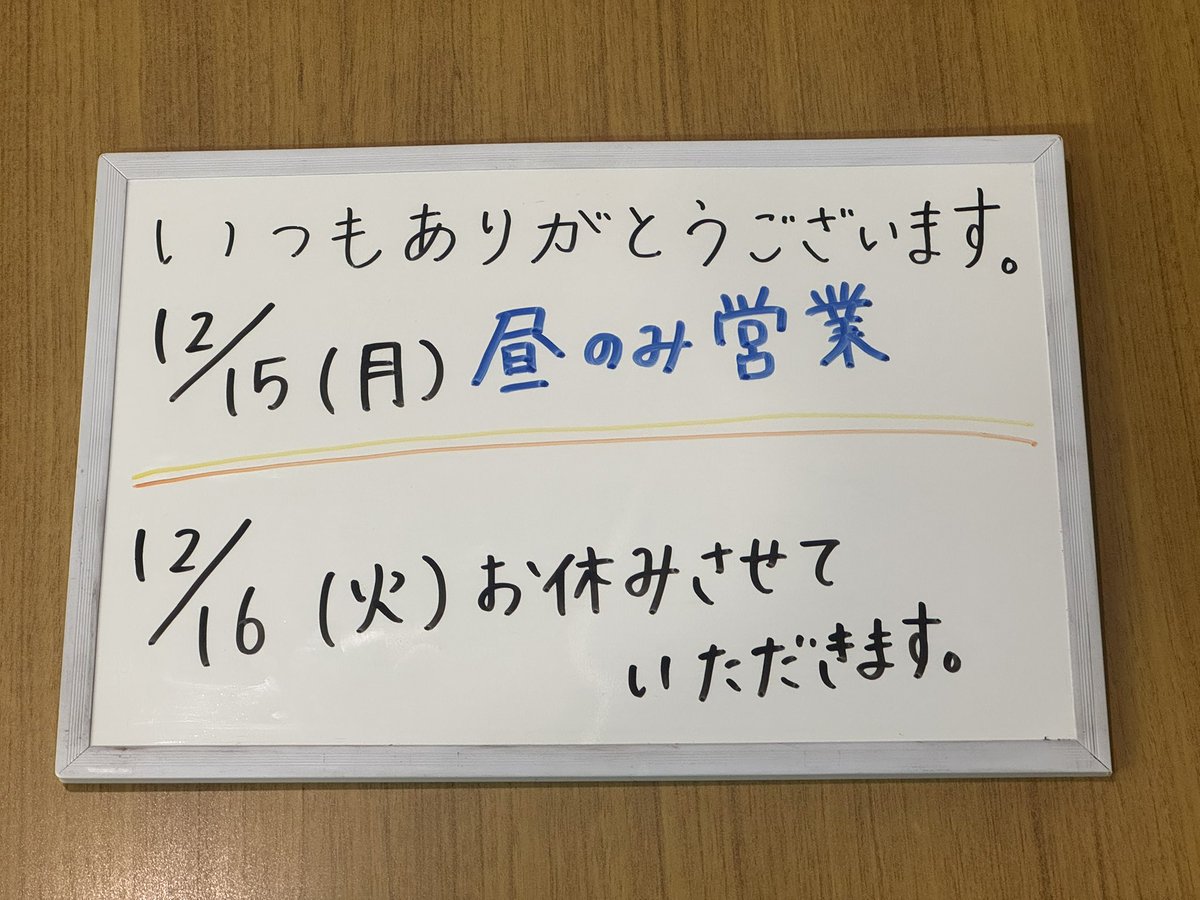 いつもありがとうございます。
12/15(月)昼のみ営業
12/16(火)お休みさせて
いただきます。